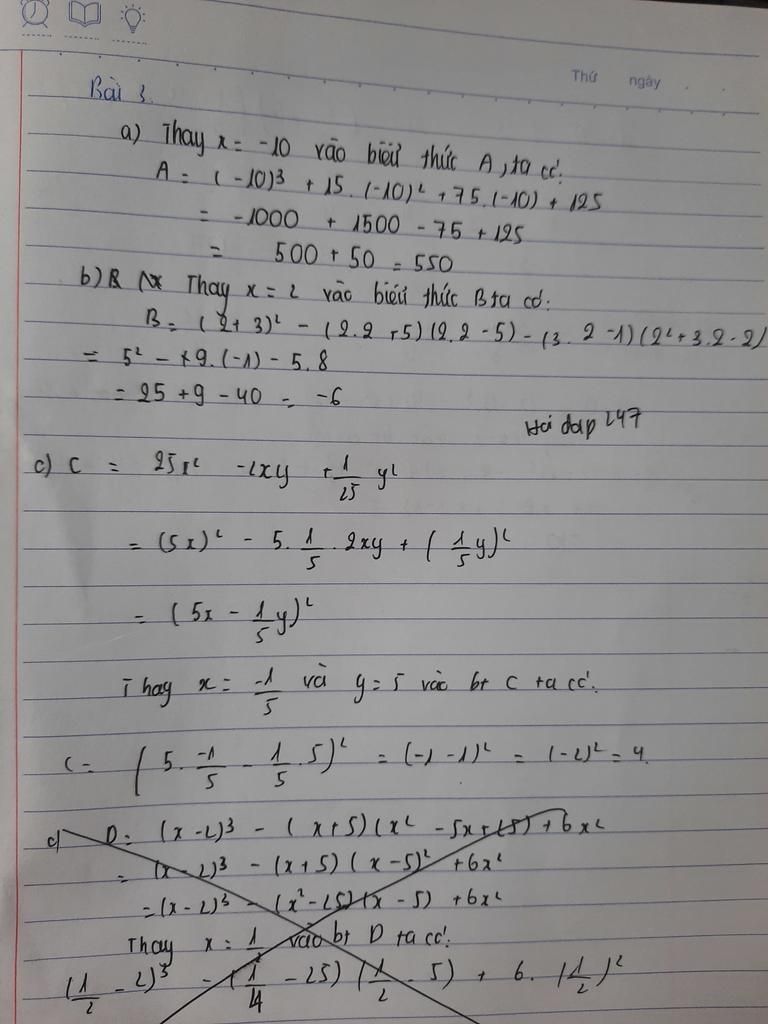 Thứ ngày . .
Bài 3.
a) Thay x = -10 vào biểu thức A, ta có:
A = (-10)³ + 15.(-10)² + 75.(-10) + 125
= -1000 + 1500 - 75 + 125
= 500 + 50 = 550
b) Thay x = 2 vào biểu thức B ta có:
B = (2+3)² - (2.2+5)(2.2-5) - (3.2-1)(2²+3.2-2)
= 5² - 9.(-1) - 5.8
= 25 + 9 - 40 = -6
Hỏi đáp 247
c) C = 25x² - 2xy + 1/25 y²
= (5x)² - 5.1/5.2xy + (1/5y)²
= (5x - 1/5y)²
Thay x = -1/5 và y = 5 vào bt C ta có:
C = (5.-1/5 - 1/5.5)² = (-1-1)² = (-2)² = 4.
D = (x-2)³ - (x+5)(x² - 5x + 25) + 6x²
= (x-2)³ - (x+5)(x-5)² + 6x²
= (x-2)³ - (x²-25)(x-5) + 6x²
Thay x = 1/2 vào bt D ta có:
(1/2 - 2)³ - (1/4 - 25)(1/2 - 5) + 6.(1/2)²